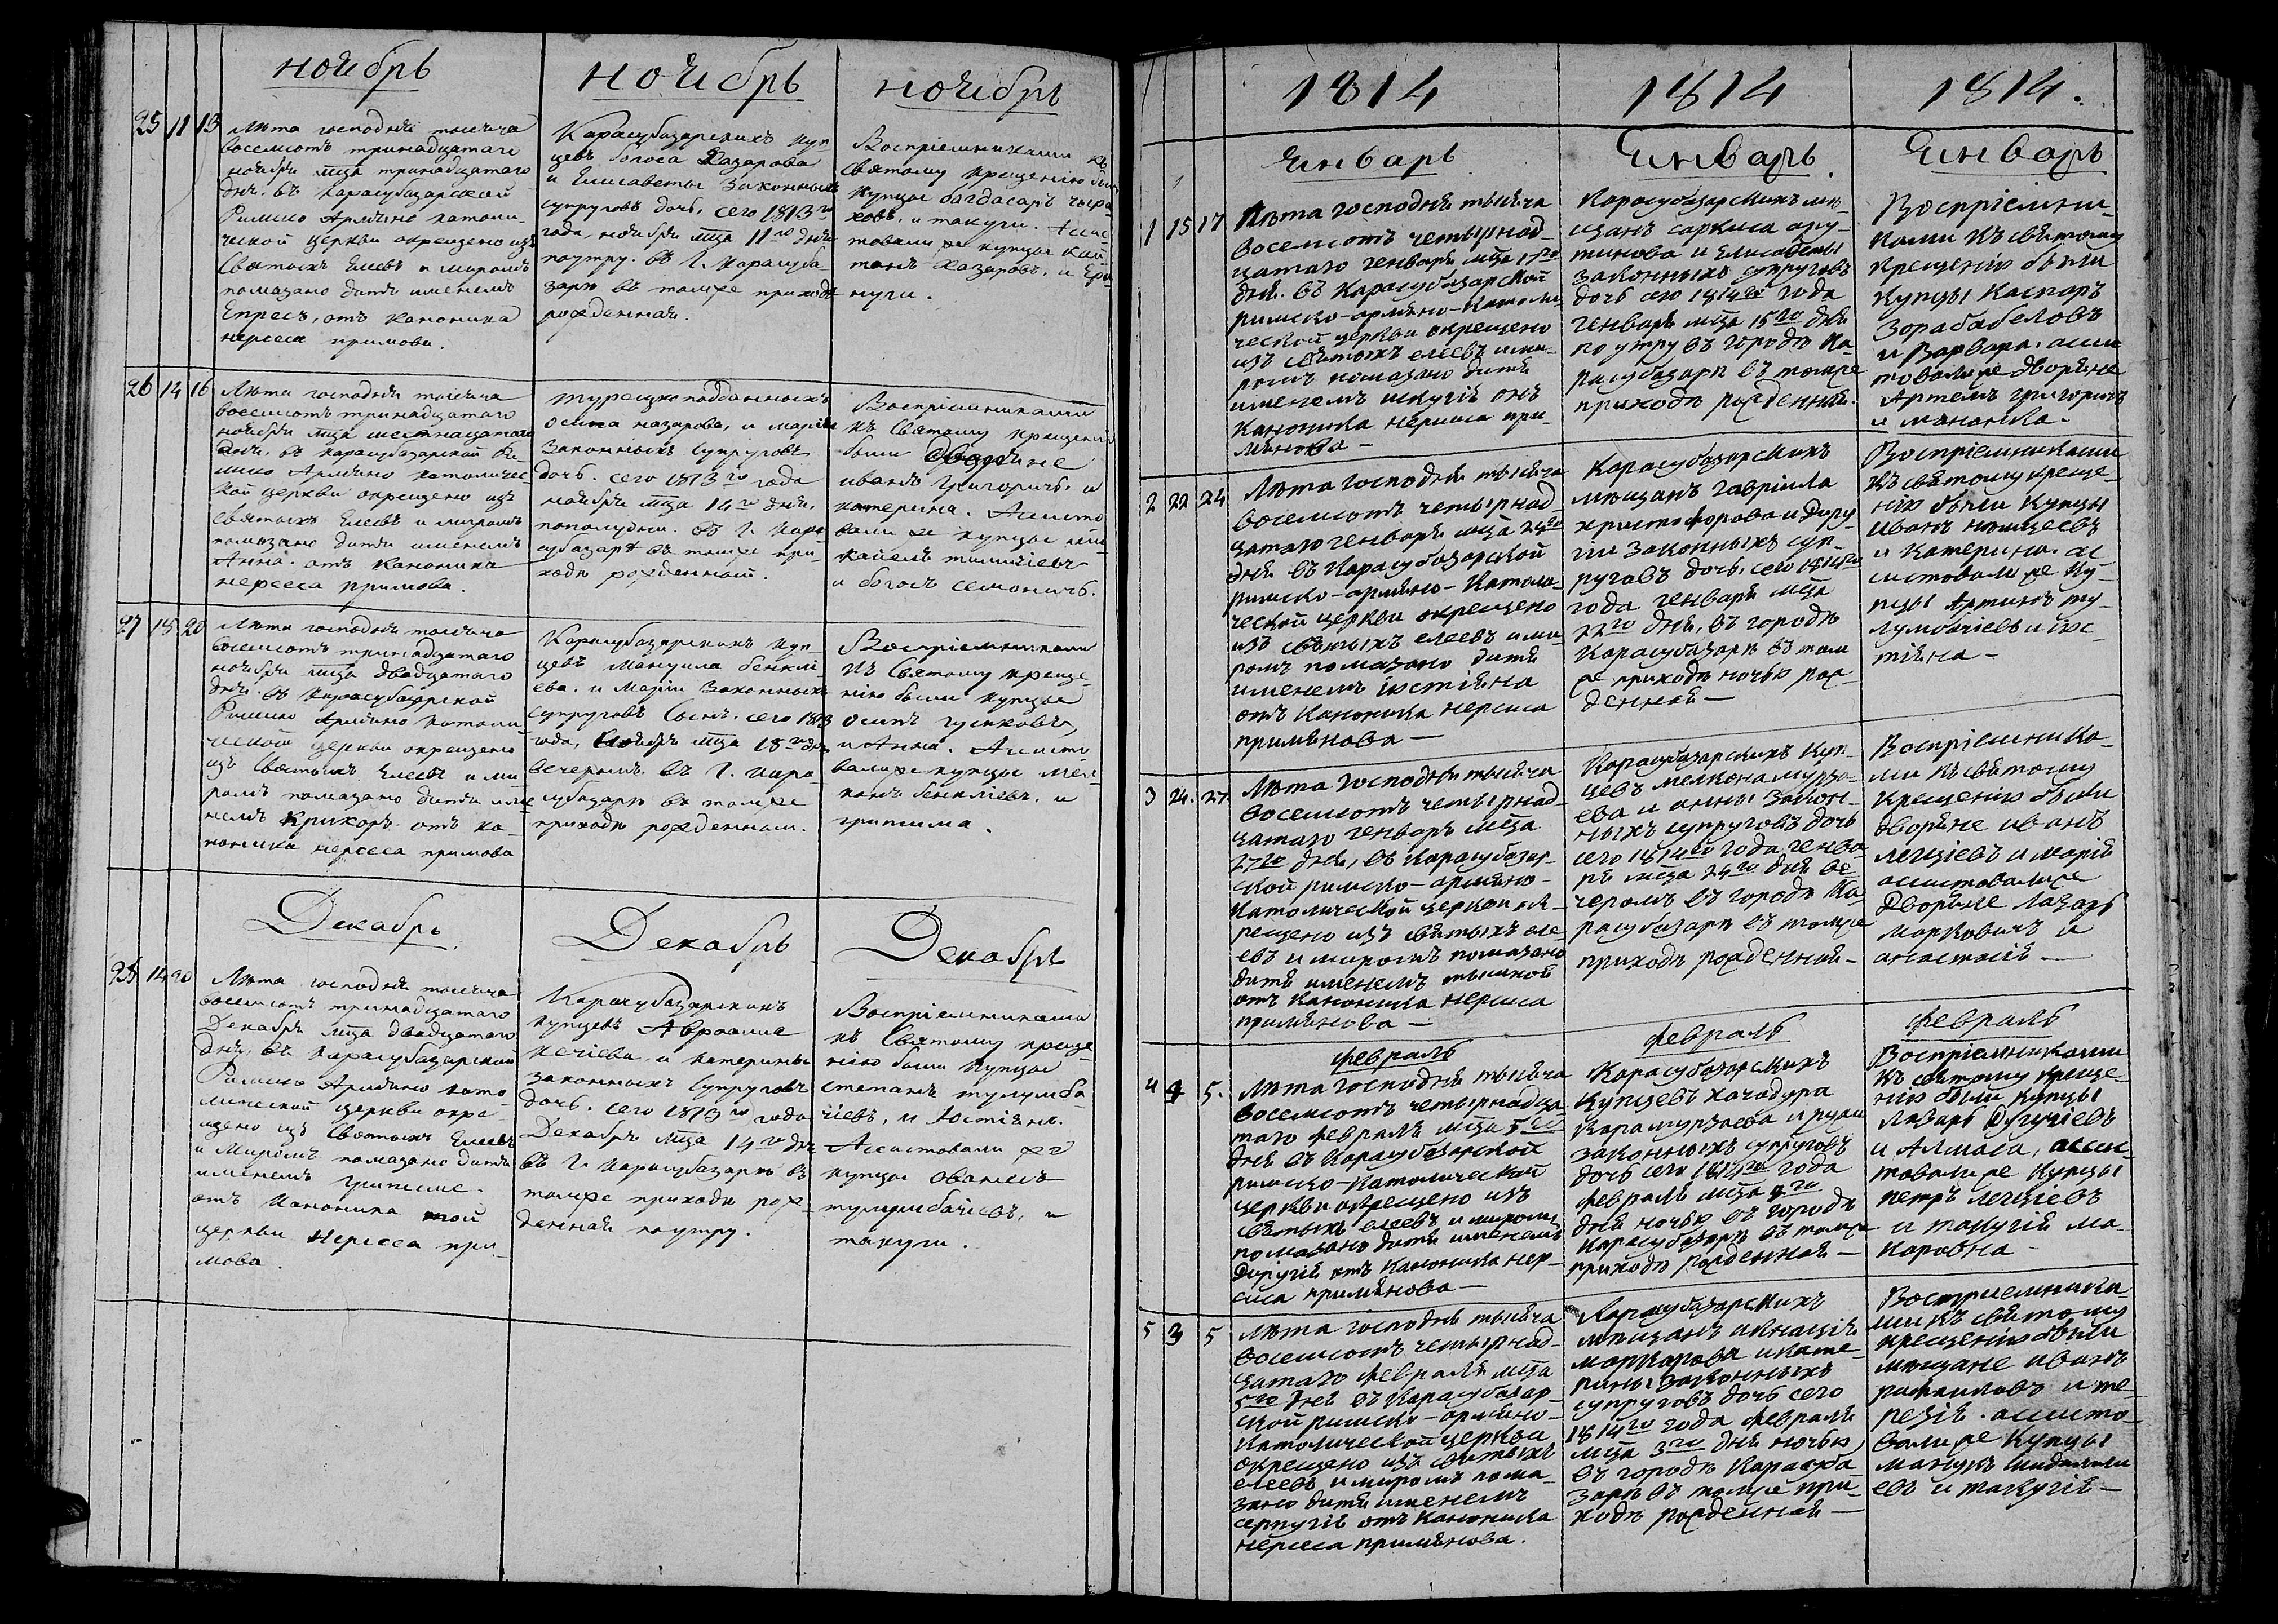 ноябрь
25 11 13
Лѣта господня тысяча
восемсотъ тринадцатаго
ноября мца тринадцатаго
дня. въ карасубазарской
Римско Армяно католи-
ческой церкви окрещено изъ
Святыхъ Елеевъ и миромъ
помазано дитя именемъ
Епресъ, отъ каноника
нерсеса примова.
ноябрь
Карасубазарскихъ куп
цевъ богоса Хазарова
и Елисаветы Законныхъ
супруговъ дочь, сего 1813го
года, ноября мца 11го дня
поутру. въ Г. Карасуба
заре въ томже приходе
рожденная.
ноябрь
Воспріемниками къ
Святому крещенію были
купцы багдасаръ
ховъ, и такуги. Ассис-
товали же купцы Кай
танъ Хазаровъ, и Ери
нуги.
26 14 16
Лѣта господня тысяча
восемсотъ тринадцатаго
ноября мца шестнацатаго
дня, въ карасубазарской Ри
мско Армяно католичес
кой церкви окрещено изъ
святыхъ Елеевъ и миромъ
помазано дитя именемъ
Анна. отъ каноника
нерсеса примова.
турецкоподданныхъ
осипа назарова, и маріи
Законныхъ Супруговъ
дочь. сего 1813го года
ноября мца 14го дня,
пополудни. въ Г. Кара
субазаре въ томже при
ходе рожденной.
Воспріемниками
къ Святому крещенію
были дворяне
иванъ Григоричъ, и
катерина. Ассисто
вали же купцы ми
каиелъ
и богосъ семоничъ.
27 18 20
Лѣта господня тысяча
восемсотъ тринадцатаго
ноября мца двадцатаго
дня въ карасубазарской
Римско Армяно католи
ческой церкви окрещено
изъ Святыхъ Елеевъ и ми
ромъ помазано дитя име
немъ Крикоръ. отъ ка-
ноника нерсеса примова
Карасубазарскихъ куп-
цевъ Мануила бенкли
ева. и Маріи Законныхъ
супруговъ Сынъ. сего 1813
года, ноябръ мца 18го дня
вечеромъ. въ Г. кара
субазаре въ томже
приходе рожденнаи.
Воспріемниками
къ Святому креще-
нію были купцы
осипъ гуликовъ,
и Анна. Ассисто
вали же купцы мел
конъ бенкліевъ, и
грипима.
Декабрь
28 14 20
Лѣта господня тысяча
восемсотъ тринадцатаго
Декабръ мца двадцатаго
дня, въ карасубазарской
Римско Армяно като
лической церкви окре-
щено изъ Святыхъ Елеевъ
и Миромъ помазано дитя
именемъ грипсиме.
отъ каноника той
церкви Нерсеса при-
мова.
Декабрь
Карасубазарскихъ
купцевъ Авраамие
кечіева, и катерины
законныхъ Супруговъ
дочь. сего 1813го года
Декабръ мца 14го дня
въ Г. карасубазаре въ
томже приходе рож-
денная поутру.
Декабрь
Воспріемниками
къ Святому креще-
нію были купцы
степанъ тулумба-
чіевъ, и Юстіяна.
Ассистовали же
купцы Ованесъ
тулумбачіевъ, и
такуги.
1814
Январь
1 15 17
Лѣта господня тысяча
восемсотъ четырнад-
цатаго генваря мца 17го
дня. въ Карасубазарской
римско-армяно-католи-
ческой церкви окрещено
изъ святыхъ елеевъ и ми-
ромъ помазано дитя
именемъ искугія отъ
Каноника нерсиса при-
мянова-
1814
Январь
Карасубазарскихъ мѣ-
щанъ саркиса ару-
тинова и Елисаветы
законныхъ супруговъ
дочь сего 1814го года
генваря мца 15го дня
по утру въ городѣ Ка-
расубазарѣ въ томже
приходѣ рожденная.
1814.
Январь
Воспріемни-
ками къ святому
крещенію были
Купцы Каспоръ
зорабабеловъ
и Варвара. асси
товали же дворяне
Артемъ григоричъ
и манонка.
2 22 24
Лѣта господня тысяча
восемсотъ четырнад-
цатаго генваря мца 24го
дня въ Карасубазарской
римско-армяно-католи-
ческой церкви окрещено
изъ святыхъ елеевъ и ми
ромъ помазано дитя
именемъ іюстіяна
отъ Каноника нерсиса
примянова-
Карасубазарскихъ
мѣщанъ гавріила
христофорова и диру-
ги законныхъ суп-
руговъ дочь, сего 1814го
года генваря мца
22го дня, въ городѣ
Карасубазарѣ въ том
же приходѣ ночью рож-
денная-
Воспріемниками
къ святому креще-
нію были купцы
иванъ
и катерина. ас
систовали же ку-
пцы Артинъ ту-
лумбачіевъ и іюс-
тіяна-
3 24. 27.
Лѣта господня тысяча
восемсотъ четырнад-
цатаго генваръ мца
27го дня, въ Карасубазар-
ской римско-армяно-
католической церкви ок-
рещено изъ святыхъ еле-
евъ и миромъ помазано
дитя именемъ
отъ каноника нерсиса
примянова-
Карасубазарскихъ куп-
цевъ мелкона мурза-
ева и анны закон-
ныхъ супруговъ дочь
сего 1814го года генва-
ря мца 24го дня ве-
черомъ въ городѣ Ка
расубазарѣ въ томже
приходѣ рожденная-
Воспріемника-
ми къ святому
крещенію были
дворяне иванъ
лещіевъ и марія
ассистовали же
дворяне лазарь
марковичъ и
анастасія-
февраль
4 4 5.
Лѣта господня тысяча
восемсотъ четырнадца-
таго февраля мца 5го
дня въ Карасубазарской
римско-католической
церкви окрещено изъ
святыхъ елеевъ и миромъ
помазано дитя именемъ
Диругія отъ Каноника нер-
сиса примянова-
февраль
Карасубазарскихъ
купцевъ хачадура
Карамурзаева и рузи
законныхъ супруговъ
дочь сего 1814го года
февраля мца 4го
дня ночью въ городѣ
Карасубазарѣ въ томже
приходѣ рожденная-
февраль
Воспріемниками
къ святому креще-
нію были купцы
лазарь
и Алмаса, асси-
товали же Купцы
петръ лещіевъ
и такугія ма-
каровна-
5 3 5
Лѣта господня тысяча
восемсотъ четырнад-
цатаго февраля мца
5го дня въ Карасубазар-
ской римско-армяно-
католической церкви
окрещено изъ святыхъ
елеевъ и миромъ пома-
зано дитя именемъ
серпугія отъ Каноника
нерсеса примянова.
Карасубазарскихъ
мѣщанъ игнація
маркарова и кате-
рины законныхъ
супруговъ дочь сего
1814го года февраля
мца 3го дня ночью
въ городѣ Карасуба-
зарѣ въ томже при-
ходѣ рожденная-
Воспріемника-
ми къ святому
крещенію были
мѣщане иванъ
рафаиловъ и те-
резія. ассисто-
вали же купцы
манукъ
евъ и такугія-